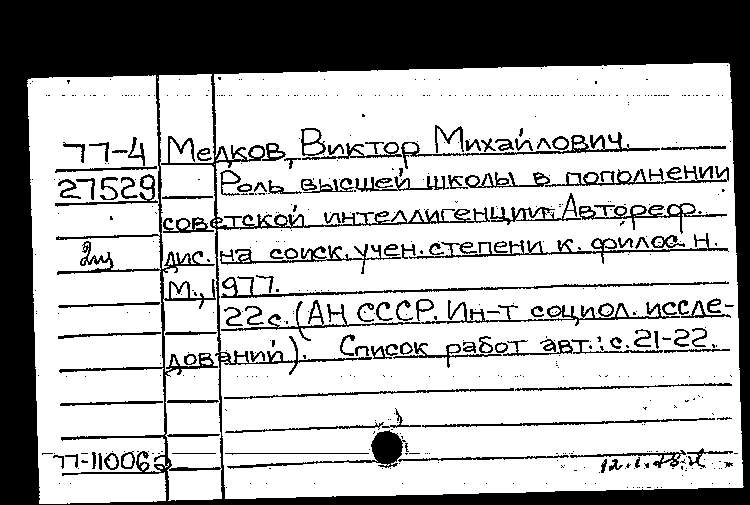 77-4 Медков, Виктор Михайлович.
27529 Роль высшей школы в пополнении
советской интеллигенции. Автореф.
дис. на соиск. учен. степени к. филос. н.
М., 1977.
22с. (АН СССР. Ин-т социол. иссле-
дований). Список работ авт.: с. 21-22.
77-11006